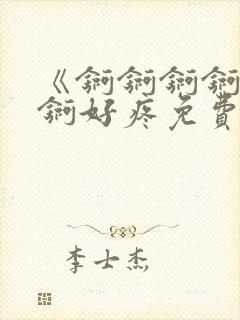 《锕锕锕锕
锕好疼免費
李士杰